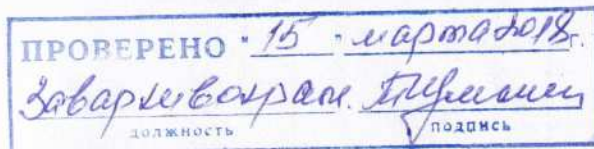 ПРОВЕРЕНО "15" марта 2018г.
Завархивохран.
должность подпись